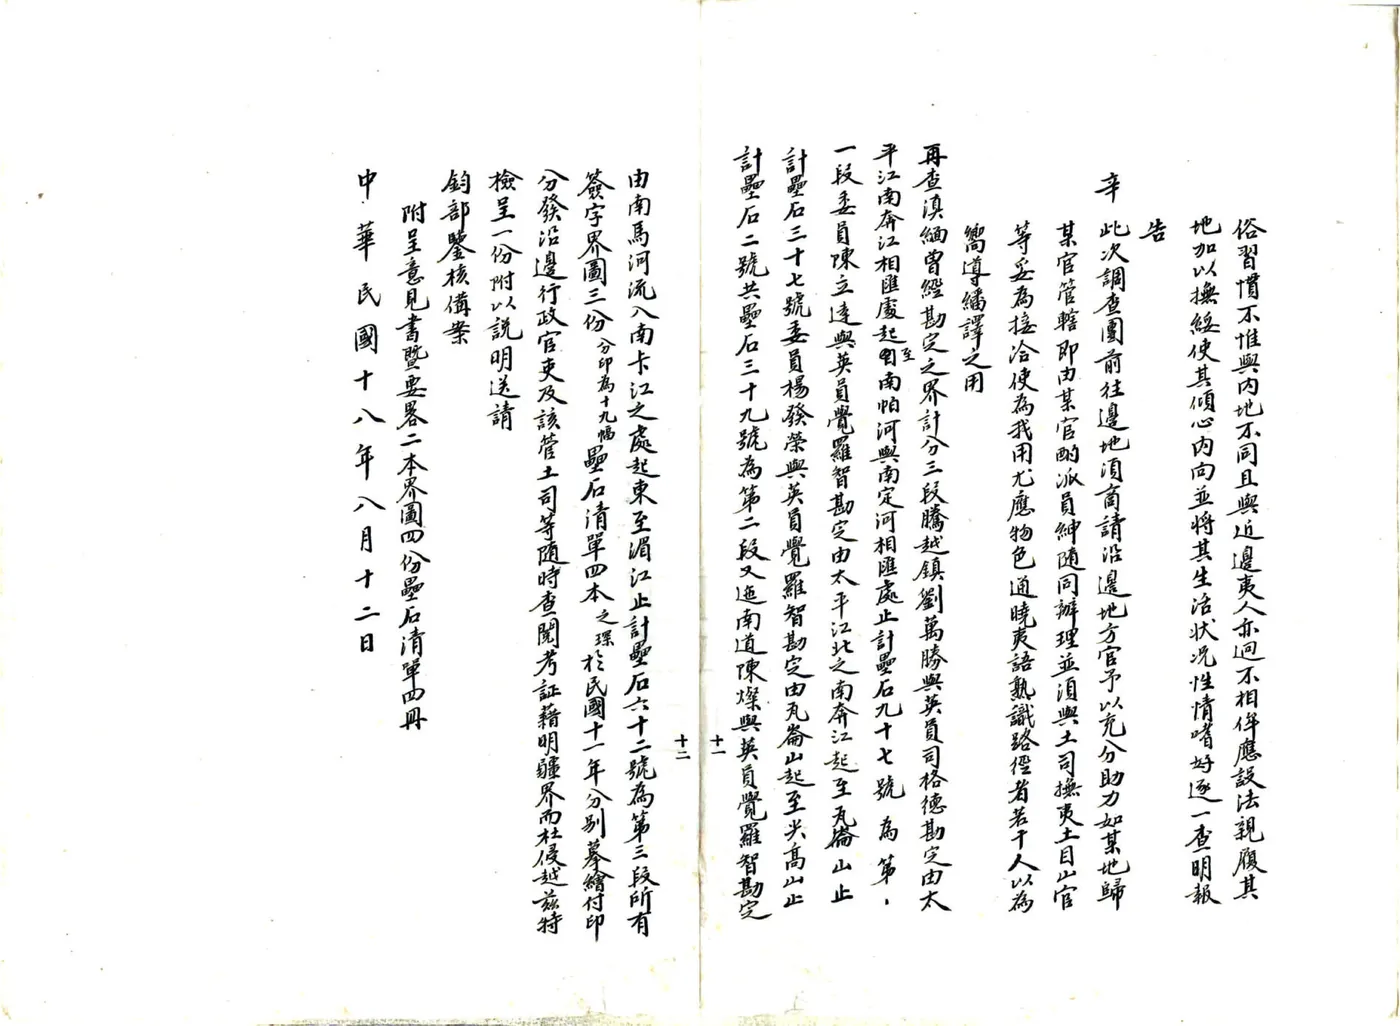 俗習慣不惟與内地不同且與近邊夷人亦迥不相侔應設法親履其
地加以撫綏使其傾心内向並將其生活狀況性情嗜好逐一查明報
告
辛 此次調查團前往邊地須商請沿邊地方官予以充分助力如某地歸
某官管轄即由某官酌派員紳隨同辦理並須與土司撫夷土目山官
等妥為接洽使為我用尤應物色通曉夷語熟識路徑者若干人以為
嚮導繙譯之用
再查滇緬曾經勘定之界計分三段騰越鎮劉萬勝與英員司格德勘定由太
平江南奔江相匯處起至南帕河與南定河相匯處止計壘石九十七號為第
一段委員陳立達與英員覺羅智勘定由太平江北之南奔江起至瓦崙山止
計壘石三十七號委員楊發榮與英員覺羅智勘定由瓦崙山起至尖高山止
計壘石二號共壘石三十九號為第二段又迤南道陳燦與英員覺羅智勘定
十一
十二
由南馬河流入南卡江之處起東至湄江止計壘石六十二號為第三段所有
簽字界圖三份分印為十九幅壘石清單四本之琛於民國十一年分别摹繪付印
分發沿邊行政官吏及該管土司等隨時查閱考証藉明疆界而杜侵越茲特
檢呈一份附以説明送請
鈞部鑒核備案
附呈意見書暨要畧二本界圖四份壘石清單四冊
中華民國十八年八月十二日